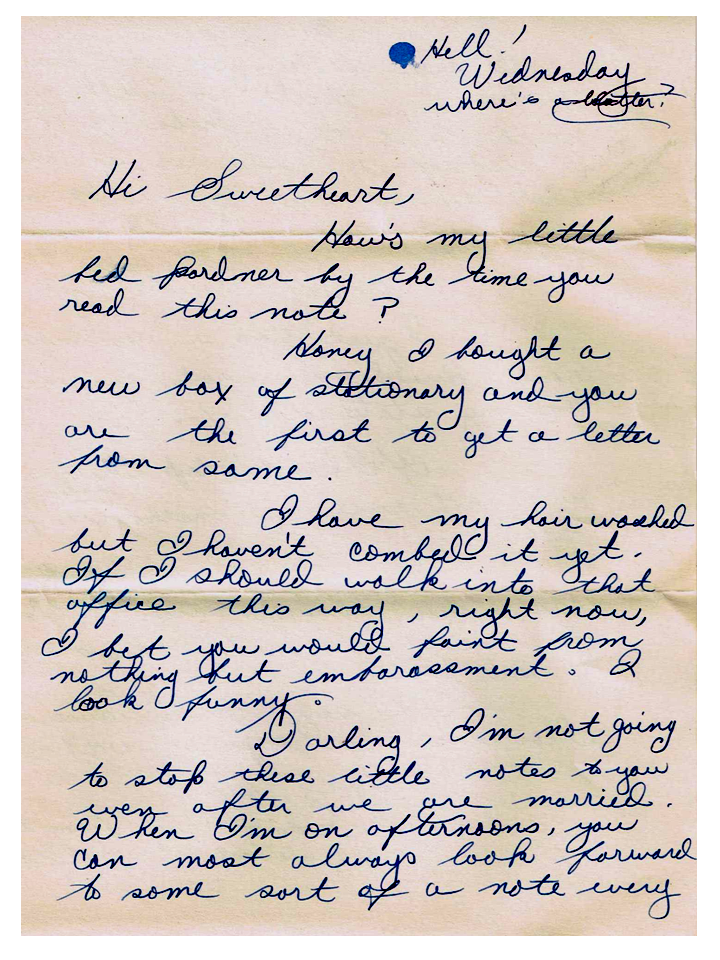 Hell!
Wednesday
where's a blotter?
Hi Sweetheart,
How's my little
bed pardner by the time you
read this note ?
Honey I bought a
new box of stationary and you
are the first to get a letter
from same.
I have my hair washed
but I haven't combed it yet.
If I should walk into that
office this way, right now,
I bet you would faint from
nothing but embarassment. I
look funny.
Darling, I'm not going
to stop these little notes to you
even after we are married.
When I'm on afternoons, you
can most always look forward
to some sort of a note every